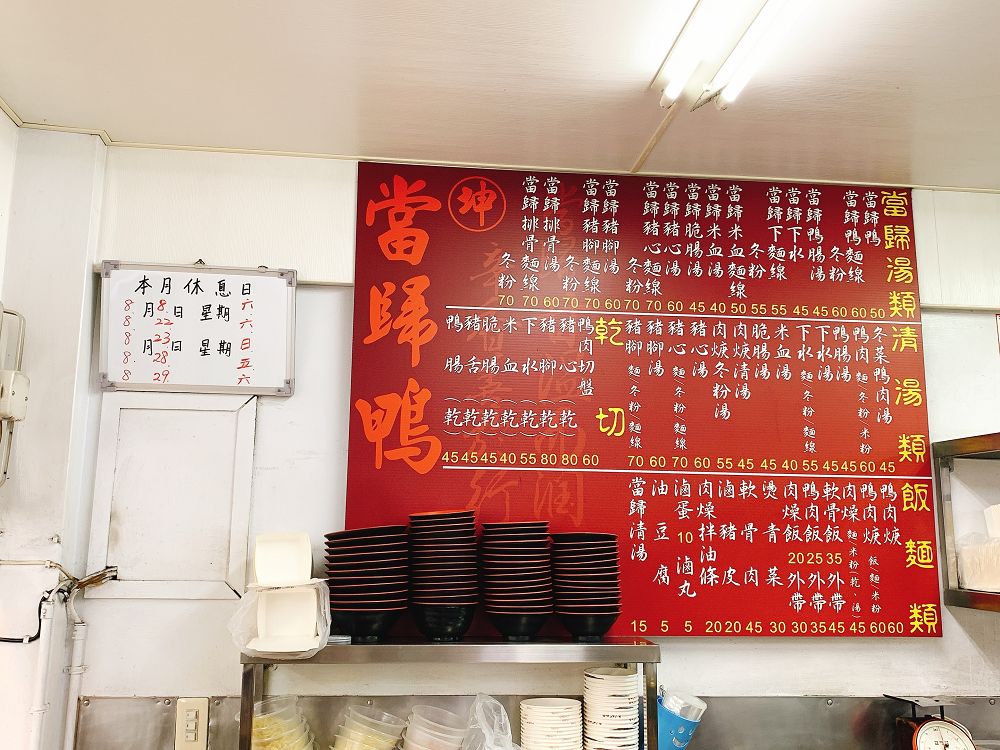 本月休息日
8月8日星期六
8 22 六
8 23 日
8月28日星期五
8 29 六
當歸鴨
坤
當歸湯類
當歸鴨 50
當歸鴨麵線 60
冬粉 60
當歸鴨腸湯 45
當歸下水湯 45
當歸下水麵線 55
冬粉 55
當歸米血麵線 50
當歸米血湯 40
當歸脆腸湯 45
當歸豬心湯 60
當歸豬心麵線 70
冬粉 70
當歸豬腳湯 60
當歸豬腳麵線 70
冬粉 70
當歸排骨湯 60
當歸排骨麵線 70
冬粉 70
清湯類
冬菜鴨肉湯 45
鴨肉 麵/冬粉/米粉 60
鴨腸湯 45
下水湯 45
下水 麵/冬粉/麵線 55
米血湯 40
脆腸湯 45
肉焿清湯 45
肉焿冬粉湯 55
豬心湯 60
豬心 麵/冬粉/麵線 70
豬腳湯 60
豬腳 麵/冬粉/麵線 70
乾切
鴨肉切盤 60
豬心(乾) 80
豬腳(乾) 80
下水(乾) 55
米血(乾) 40
脆腸(乾) 45
豬舌(乾) 45
鴨腸(乾) 45
飯麵類
鴨肉焿 60
鴨肉焿 飯/麵/米粉 60
肉燥 麵米粉/乾、湯 45
軟骨飯 35 外帶 45
鴨肉飯 25 外帶 35
肉燥飯 20 外帶 30
燙青菜 30
軟骨肉 45
滷豬皮 20
肉燥拌油條 20
滷蛋 10
滷丸 5
油豆腐 5
當歸清湯 15